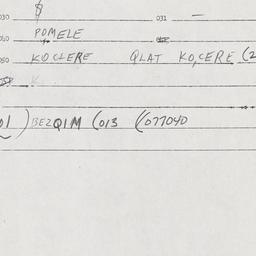 030 $ 031 —
POMELE
050 KOCLERE QLAT KOCERE (2
01) BEZQIM (013 ((077040